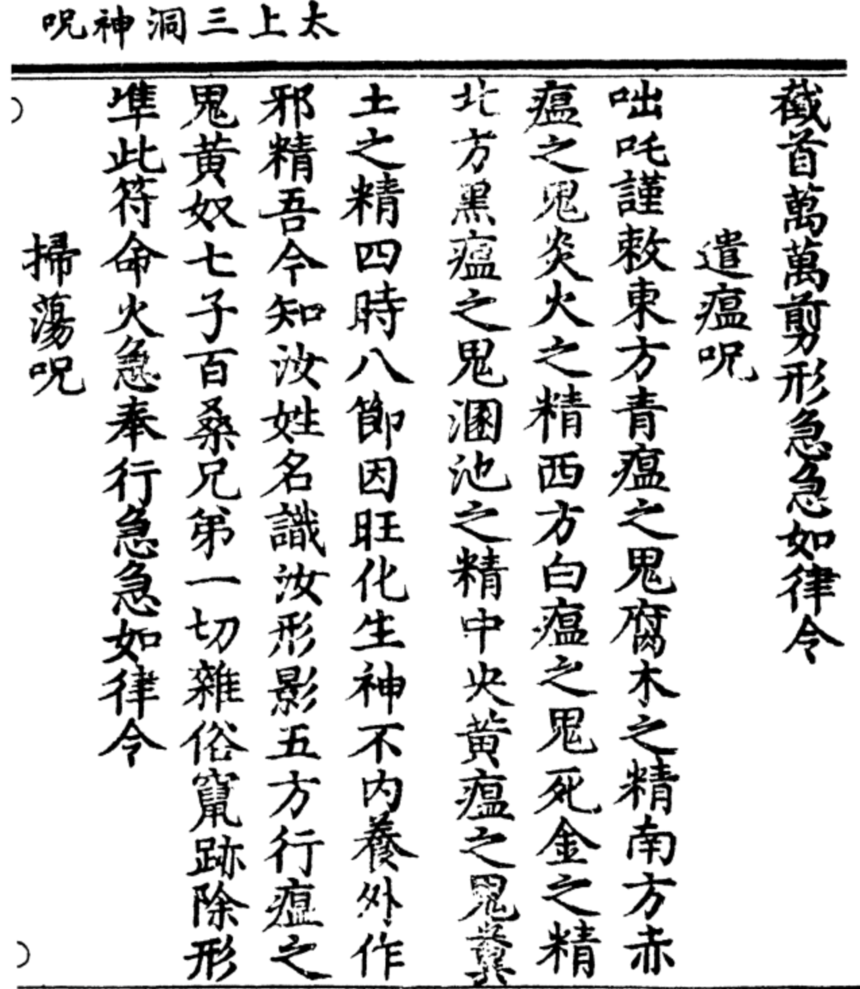 太上三洞神呪
截首萬萬剪形急急如律令
遣瘟呪
咄吒謹敕東方青瘟之鬼腐木之精南方赤
瘟之鬼炎火之精西方白瘟之鬼死金之精
北方黑瘟之鬼溷池之精中央黄瘟之鬼糞
土之精四時八節因旺化生神不内養外作
邪精吾今知汝姓名識汝形影五方行瘟之
鬼黄奴七子百桑兄弟一切雜俗竄跡除形
準此符命火急奉行急急如律令
掃蕩呪